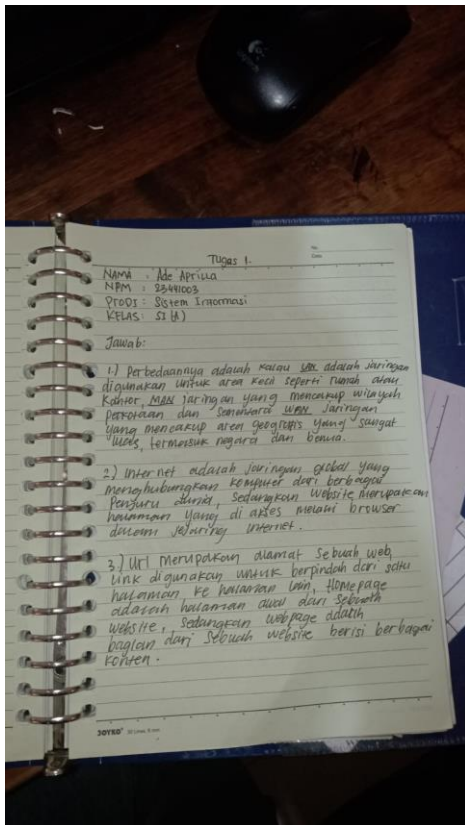 No.
Date.
Tugas 1.
NAMA : Ade Apriska
NPM : 23441003
PRODI : Sistem Informasi
KELAS : S1 (A)
Jawab:
1.) Perbedaannya adalah kalau LAN adalah jaringan
digunakan untuk area kecil seperti rumah atau
kantor, MAN jaringan yang mencakup wilayah
perkotaan dan Sementara WAN Jaringan
yang mencakup area geografis yang sangat
luas, termasuk negara dan benua.
2.) Internet adalah jaringan global yang
menghubungkan komputer dari berbagai
Penjuru dunia, sedangkan website merupakan
halaman yang di akses melalui browser
dalam jejaring internet.
3.) Url merupakan alamat sebuah web,
link digunakan untuk berpindah dari satu
halaman, ke halaman lain, Homepage
adalah halaman awal dari sebuah
website, sedangkan webpage adalh
bagian dari sebuah website berisi berbagai
konten.
JOYKO